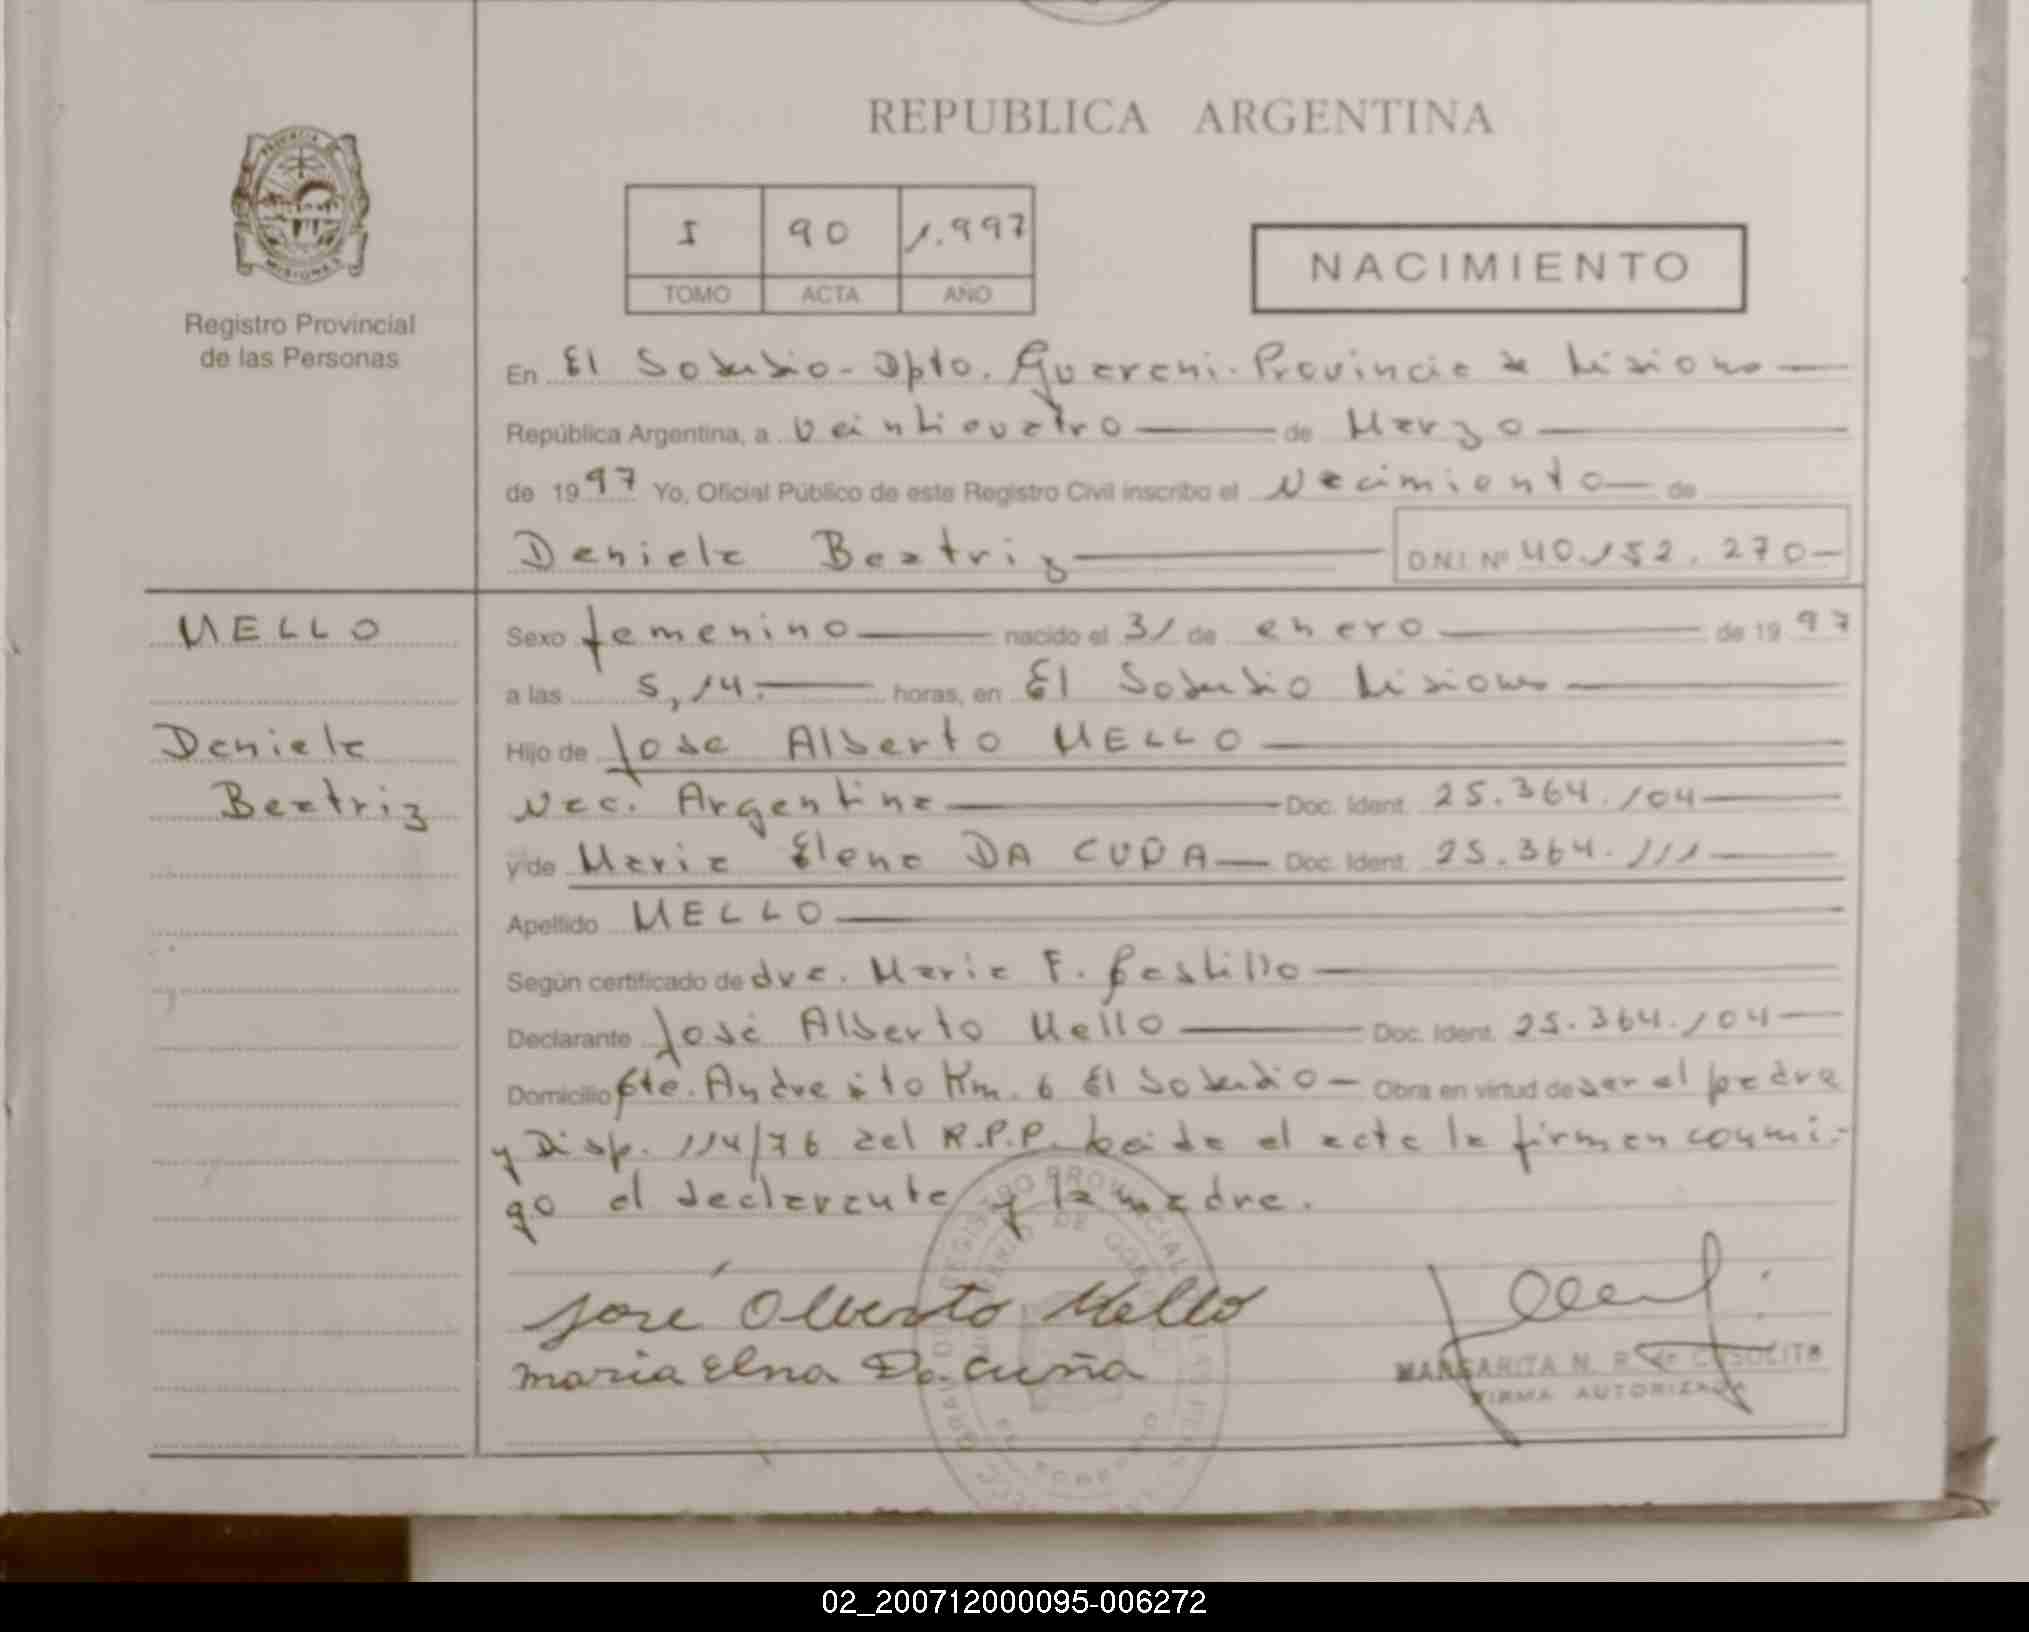 REPUBLICA ARGENTINA
PROVINCIA
MISIONES
Registro Provincial
de las Personas
I 90 1.997
TOMO ACTA AÑO
NACIMIENTO
En El Soberbio - Dpto. Guarani - Provincia de Misiones
República Argentina, a veinticuatro de Marzo
de 1997 Yo, Oficial Público de este Registro Civil inscribo el Nacimiento de
Daniela Beatriz D.N.I. Nº 40.152.270
MELLO
Daniela
Beatriz
Sexo femenino nacido el 31 de enero de 1997
a las 5,14. horas, en El Soberbio Misiones
Hijo de José Alberto MELLO
Nac. Argentina Doc. Ident. 25.364.104
y de Maria Elena DA CUÑA Doc. Ident. 25.364.111
Apellido MELLO
Según certificado de dra. Maria F. Castillo
Declarante José Alberto Mello Doc. Ident. 25.364.104
Domicilio Cte. Andresito Km. 6 El Soberbio - Obra en virtud de ser el padre
y Disp. 114/76 del R.P.P. Leida el acta la firman conmi-
go el declarante y la madre.
José Alberto Mello
maria Elna Da Cuña
MARGARITA N. R. de
FIRMA AUTORIZADA
REGISTRO PROVINCIAL DE LAS PERSONAS
02_200712000095-006272